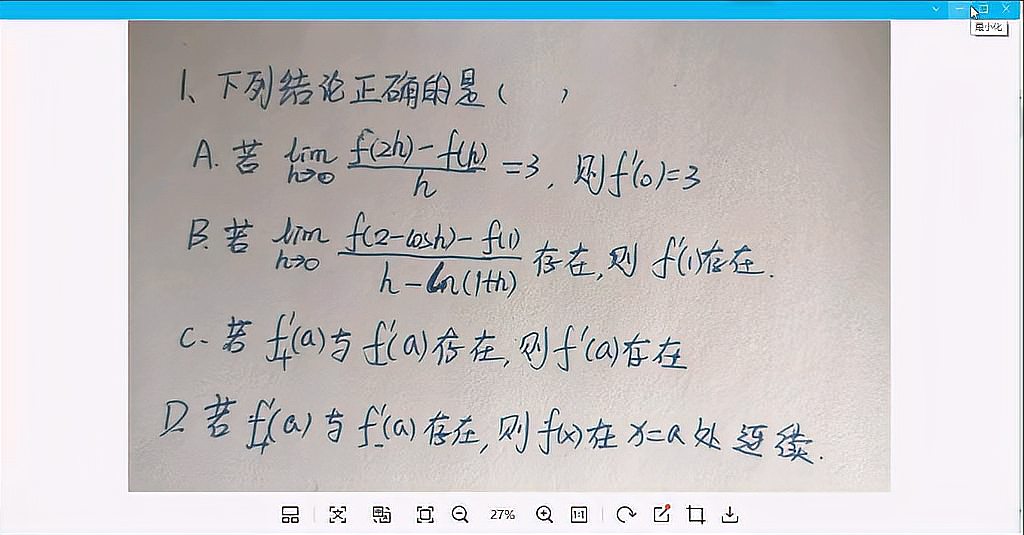 最小化
1、下列结论正确的是（ ）
A. 若 lim h→0 f(2h)-f(h) / h =3, 则f'(0)=3
B. 若 lim h→0 f(2-cosh)-f(1) / h-ln(1+h) 存在,则 f'(1)存在.
C. 若 f'₊(a)与 f'₋(a)存在,则f'(a)存在
D. 若 f'₊(a) 与 f'₋(a) 存在,则 f(x)在 x=a 处 连续.
27%
1:1